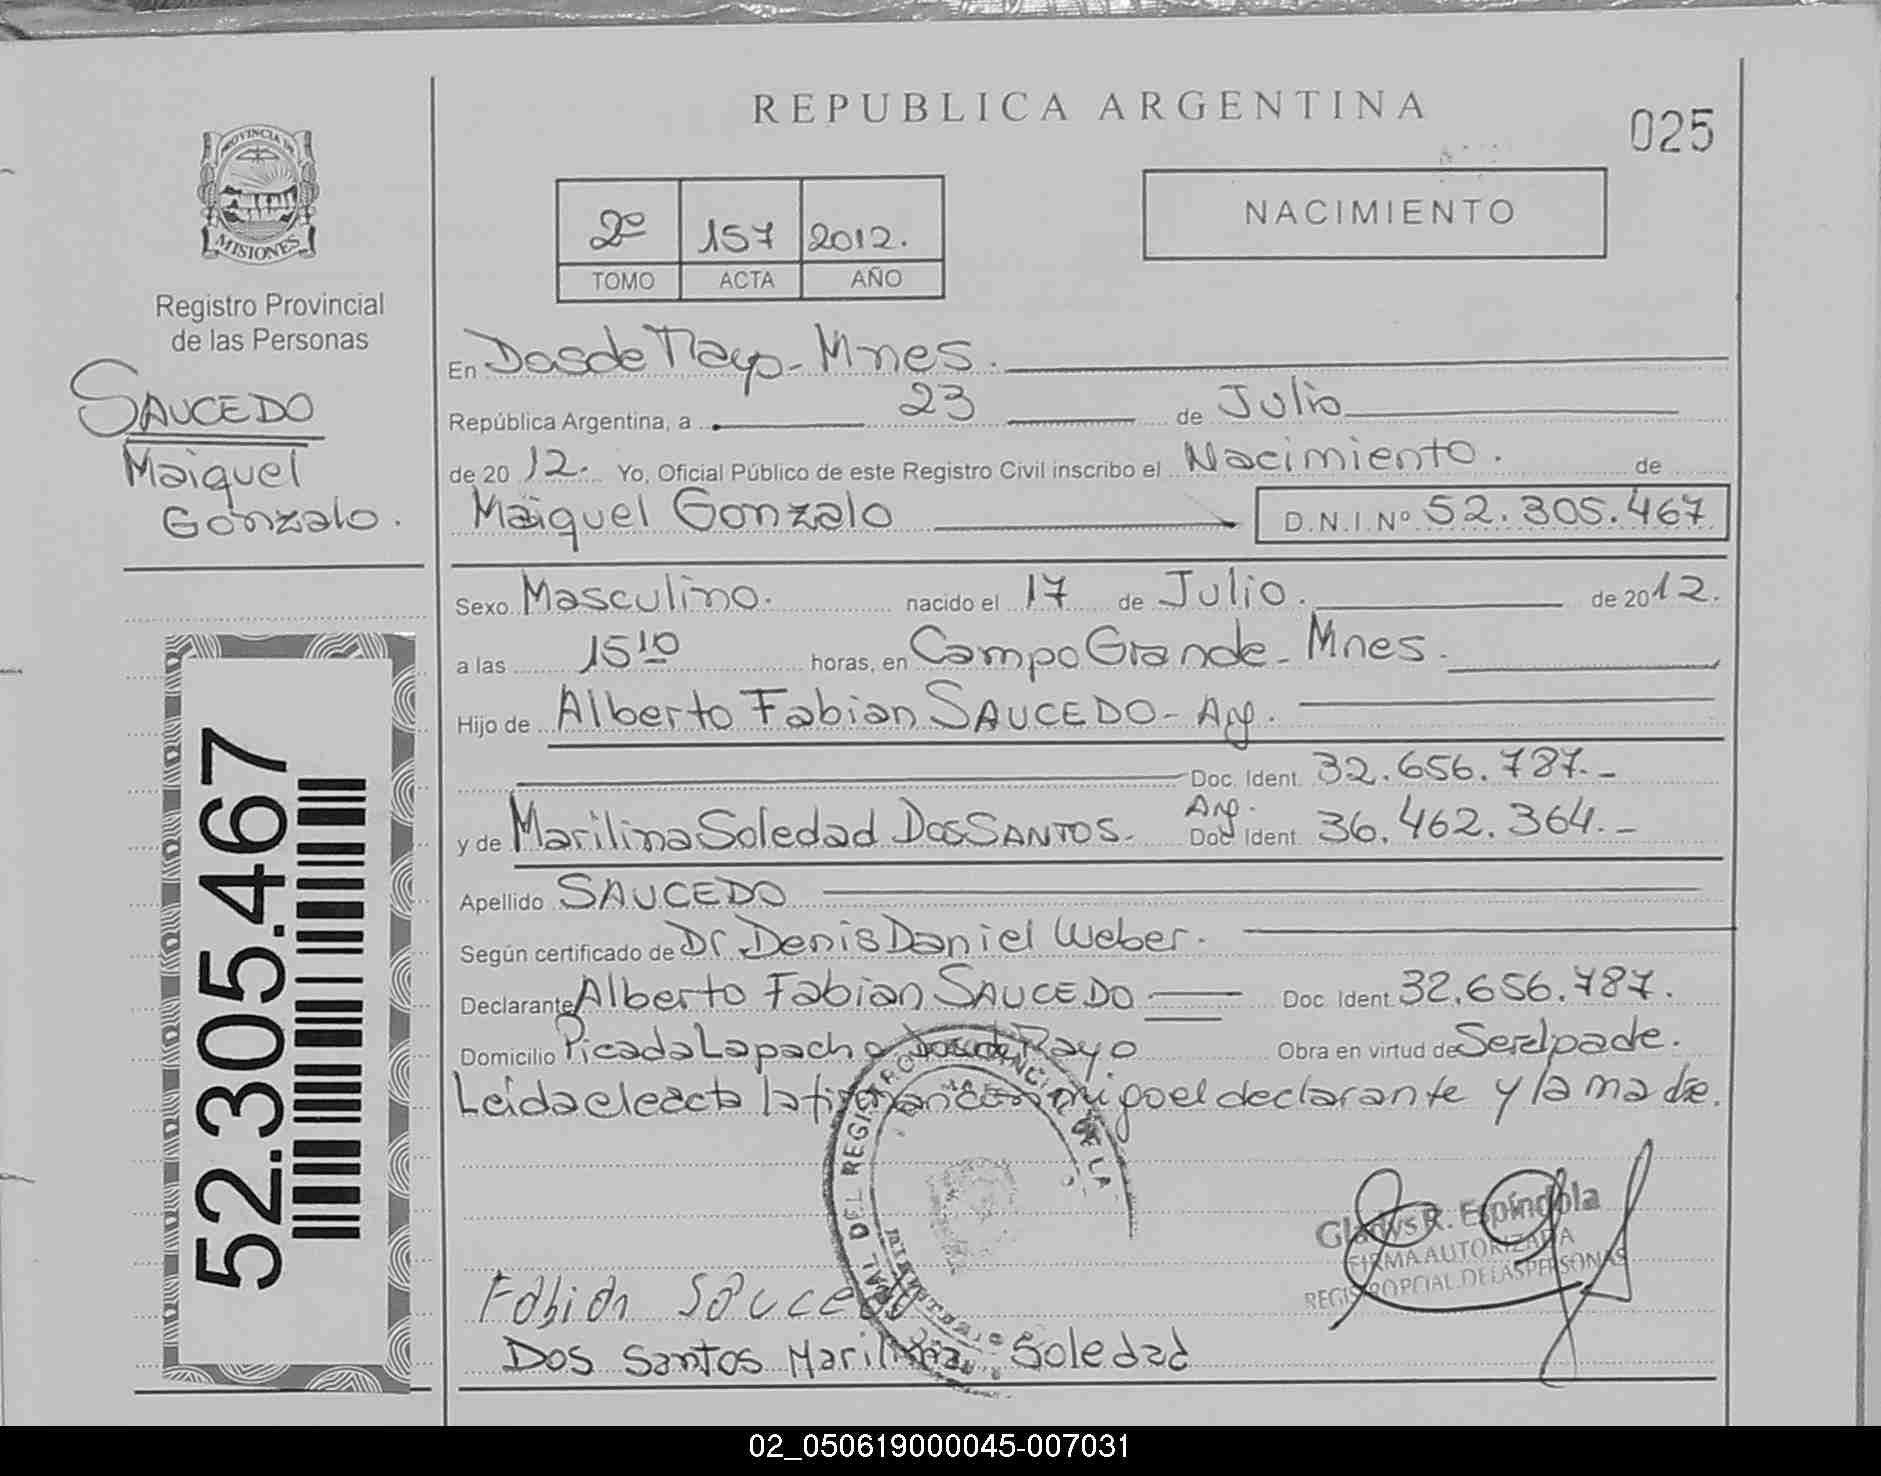 REPUBLICA ARGENTINA
025
PROVINCIA DE
MISIONES
Registro Provincial
de las Personas
SAUCEDO
Maiquel
Gonzalo.
52.305.467
2º 157 2012.
TOMO ACTA AÑO
NACIMIENTO
En Dos de Mayo - Mnes.
República Argentina, a 23 de Julio
de 20 12. Yo, Oficial Público de este Registro Civil inscribo el Nacimiento. de
Maiquel Gonzalo D.N.I.Nº 52.305.467
Sexo Masculino. nacido el 17 de Julio. de 2012.
a las 15 10 horas, en Campo Grande - Mnes.
Hijo de Alberto Fabian SAUCEDO - Arg.
Doc. Ident. 32.656.787.-
y de Marilina Soledad DOS SANTOS - Arg. Doc. Ident. 36.462.364.-
Apellido SAUCEDO
Según certificado de Dr. Denis Daniel Weber.
Declarante Alberto Fabian SAUCEDO Doc. Ident. 32.656.787.
Domicilio Picada Lapacho Obra en virtud de Ser el padre.
Leida el acta la firman conmigo el declarante y la madre.
Gladys R. Espíndola
FIRMA AUTORIZADA
REGIST. ROPCIAL. DE LAS PERSONAS
Fabian Saucedo
Dos Santos Marilina Soledad
02_050619000045-007031